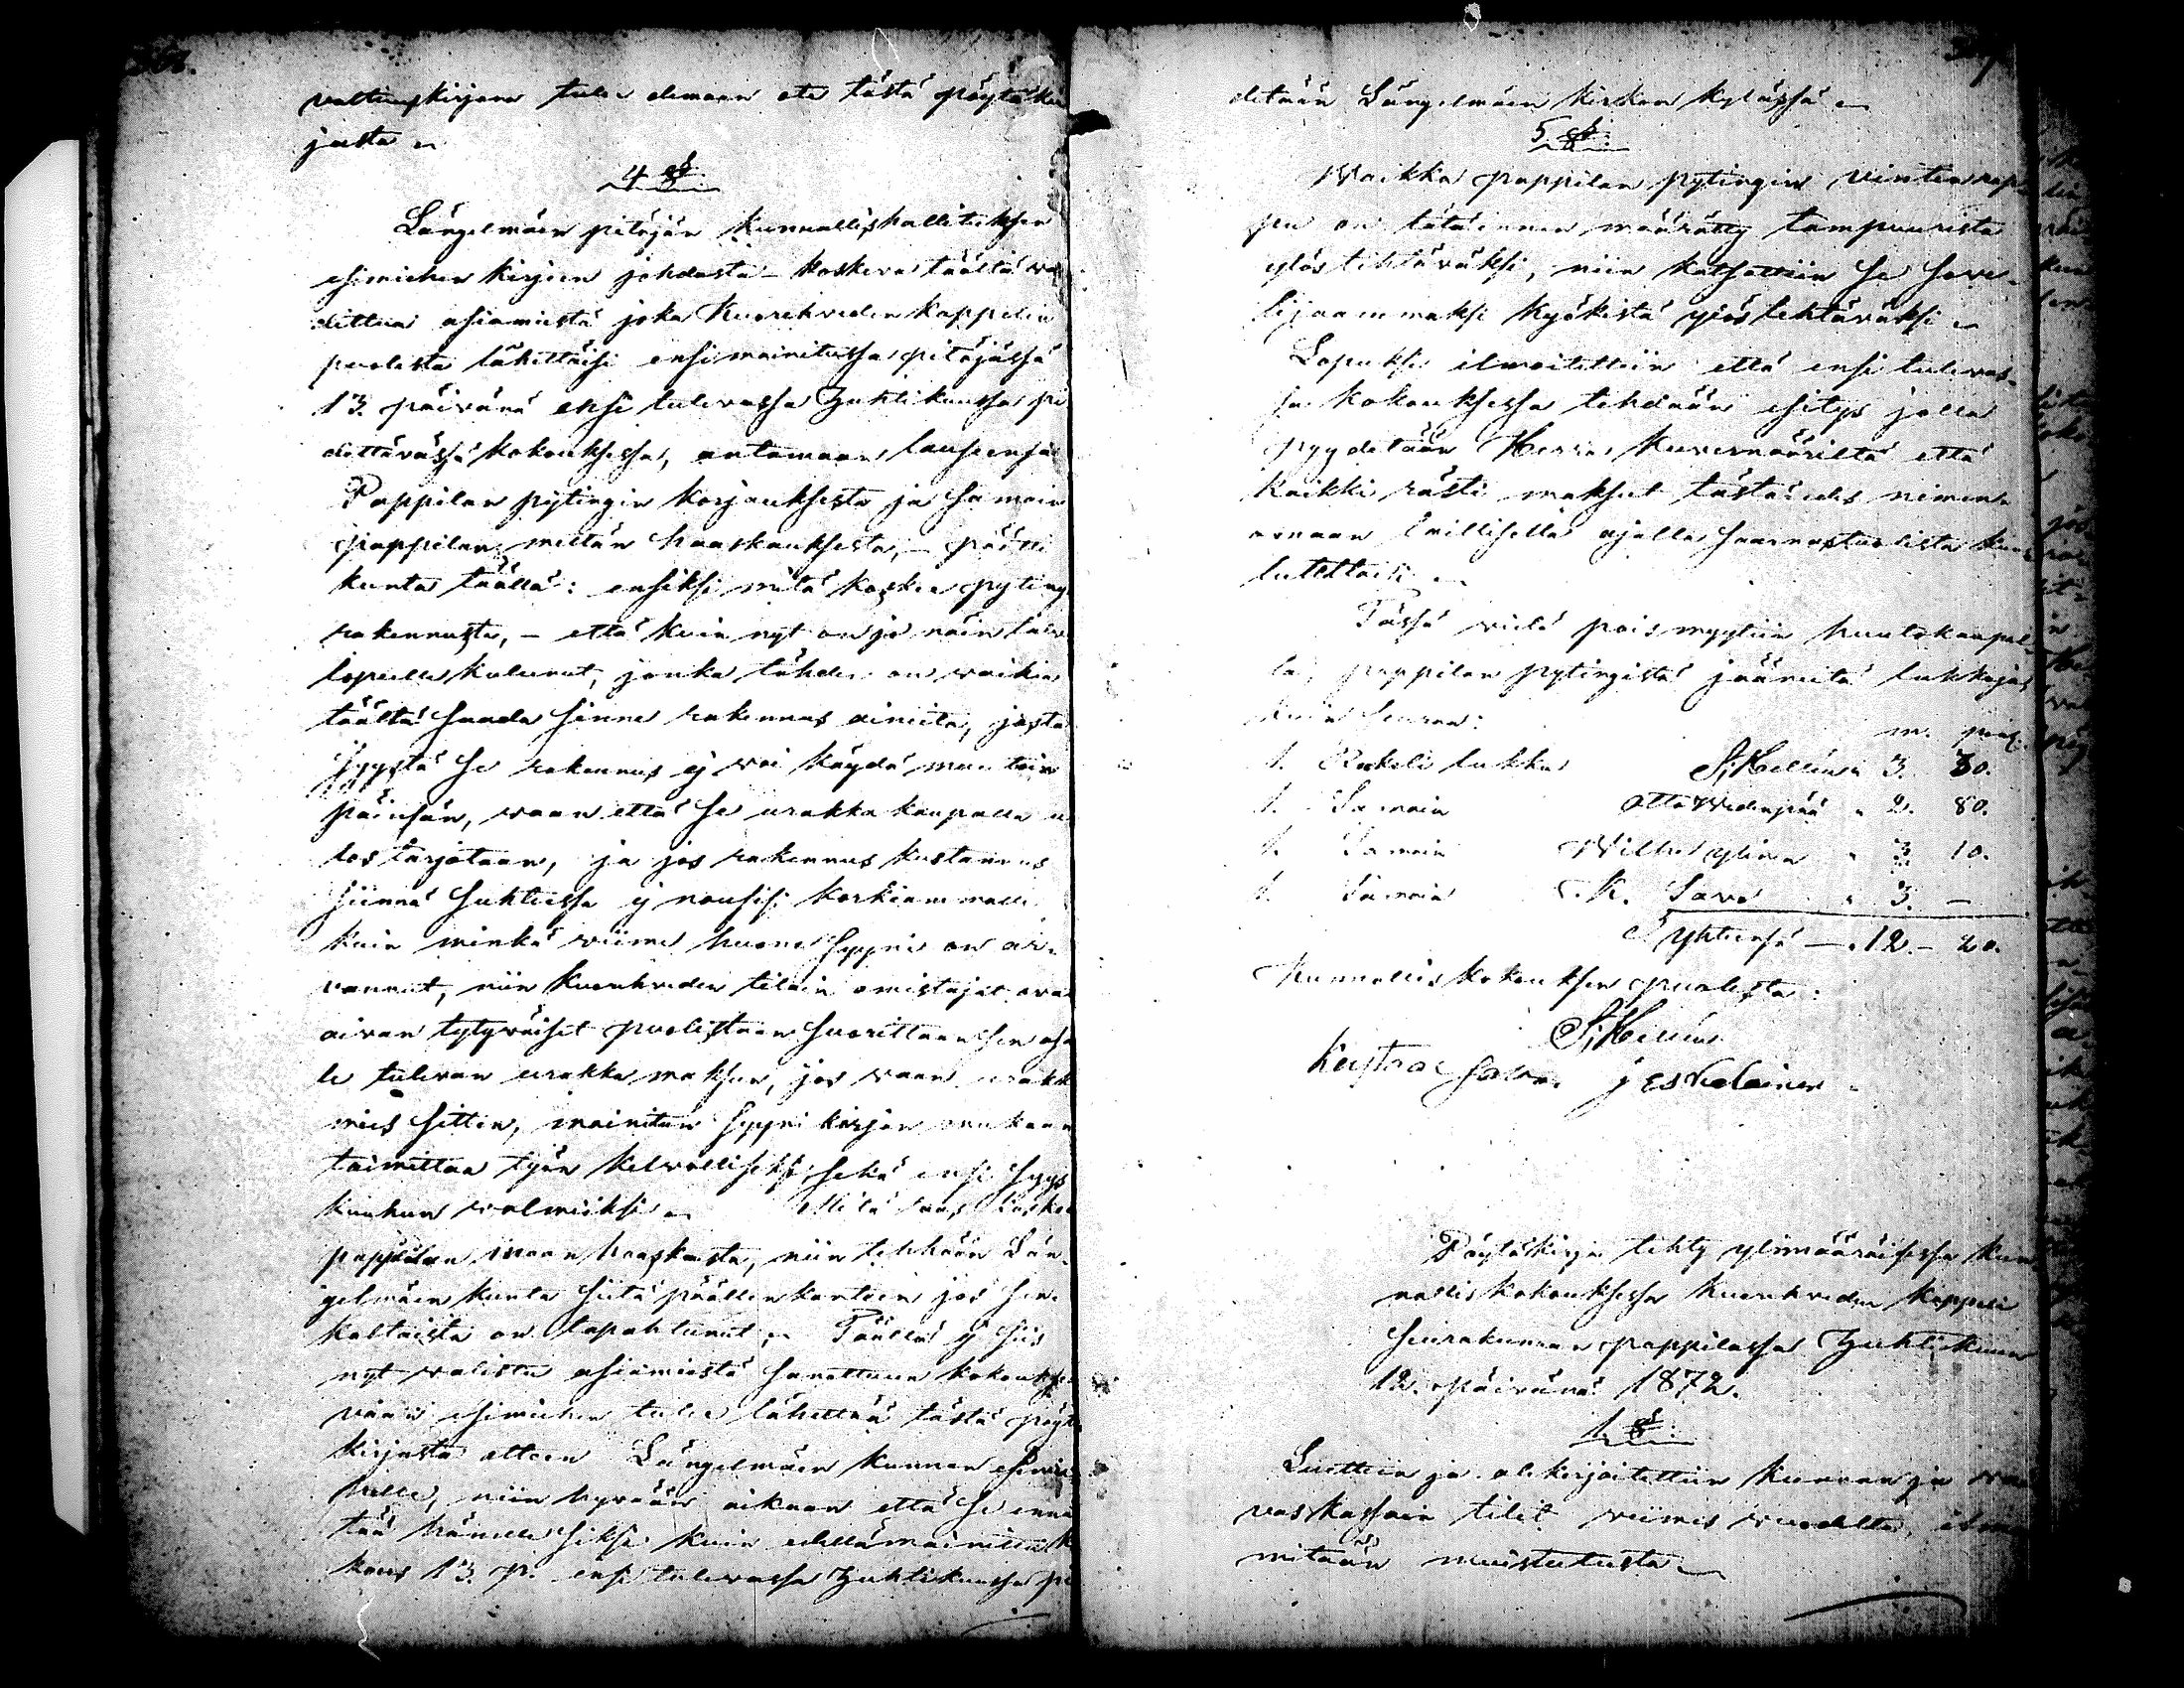 valtuuskirjana tulee olemaan ote tästä pöytäkir
jasta
4 §.
Längelmäen pitäjän kunnallishallituksen
esimiehen kirjeen johdosta – koskeva täältä va
littua asiamiestä joka Kuorehveden kappelin
puolesta lähettäisi ensimainitussa pitäjässä
13. päivänä ensi tulevassa Huhtikuussa pi
dettävässä kokouksessa, antamaan lauseensa
Pappilan pytingin korjauksesta ja samain
pappilan mettän haaskauksesta, – päätti
kunta täällä: ensiksi mitä koskee pyting
rakennusta, – että kuin nyt on jo näin talve
lopulle kulunut, jonka tähden on vaikia
täältä saada sinne rakennus aineita, josta
syystä se rakennus ej voi käydä muutoin
päinsän, vaan että se urakka kaupalla u
los tarjotaan, ja jos rakennus kustannus
siinnä suhteessa ej nousisi korkiammalle
kuin minkä viime huone syyni on ar-
vannut, niin Kuorehveden tiloin omistajat ovat
aivan tytyväiset puolistaan suorittaan sen osa
le tulevan urakka maksun, jos vaan urakk
mies sitten, mainitun syyni kirjan mukaan
toimittaa työn kelvolliseksi sekä ensi syys
kuuhun valmiiksi Mitä taas koskee
pappilan maan haaskausta, niin tehkään Län-
gelmäen kunta siitä päällenkanteen jos sen
kaltaista on tapahtunut. Täällä ej siis
nyt valittu asiamiestä sanottuun kokoukseen
vaan esimiehen tulee lähettää tästä pöytä
kirjasta otteen Längelmäen kunnan esimie
helle, niin hyvään aikaan että se ennä
tää hänelle siksi kuin edellämainittu ko
kous 13. p. ensi tulevassa Huhtikuussa pi
detään Längelmäen kirkon kylässä
5 §.
Waikka pappilan pytingin vintin rap
pu on tätäennen määrätty tampuurista
ylös tehtäväksi, niin katsottiin se sove-
lijaammaksi kyökistä ylös tehtäväksi
Lopuksi ilmoitettiin että ensi tulevas-
sa kokouksessa tehdään esitys jolla
pyydetään Herra Kuvernööriltä että
kaikki rästi maksut tästäedes nimen
omaan laillisella ajalla saarnastuolista kuu
lutettaisi
Tässä vielä pois myytiin huutokaupal-
la, pappilan pytingistä jääneitä lukkoja
kuin seuraa:
m. pen.
1. Kookeli lukku S; Hellen " 3. 30.
1. Samain Otto Wedenpää " 2. 80.
1. Samain Wilhel ylinen " 3 10.
1. Samain K. Savo " 3. –
Yhteensä – 12 – 20.
Kunnallis kokouksen puolesta:
S; Hellen
Kustaa Savo j Eskolainen
Pöytäkirja tehty ylimääräisessä kun
nallis kokouksessa Kuorehveden Kappeli
seurakunnan pappilassa Huhtikuun
12. päivänä 1872.
1 §.
Luettiin ja alekirjoitettiin kunnan ja vai
vas kassain tilet viimes vuodelta, ilman
mitään muistutusta